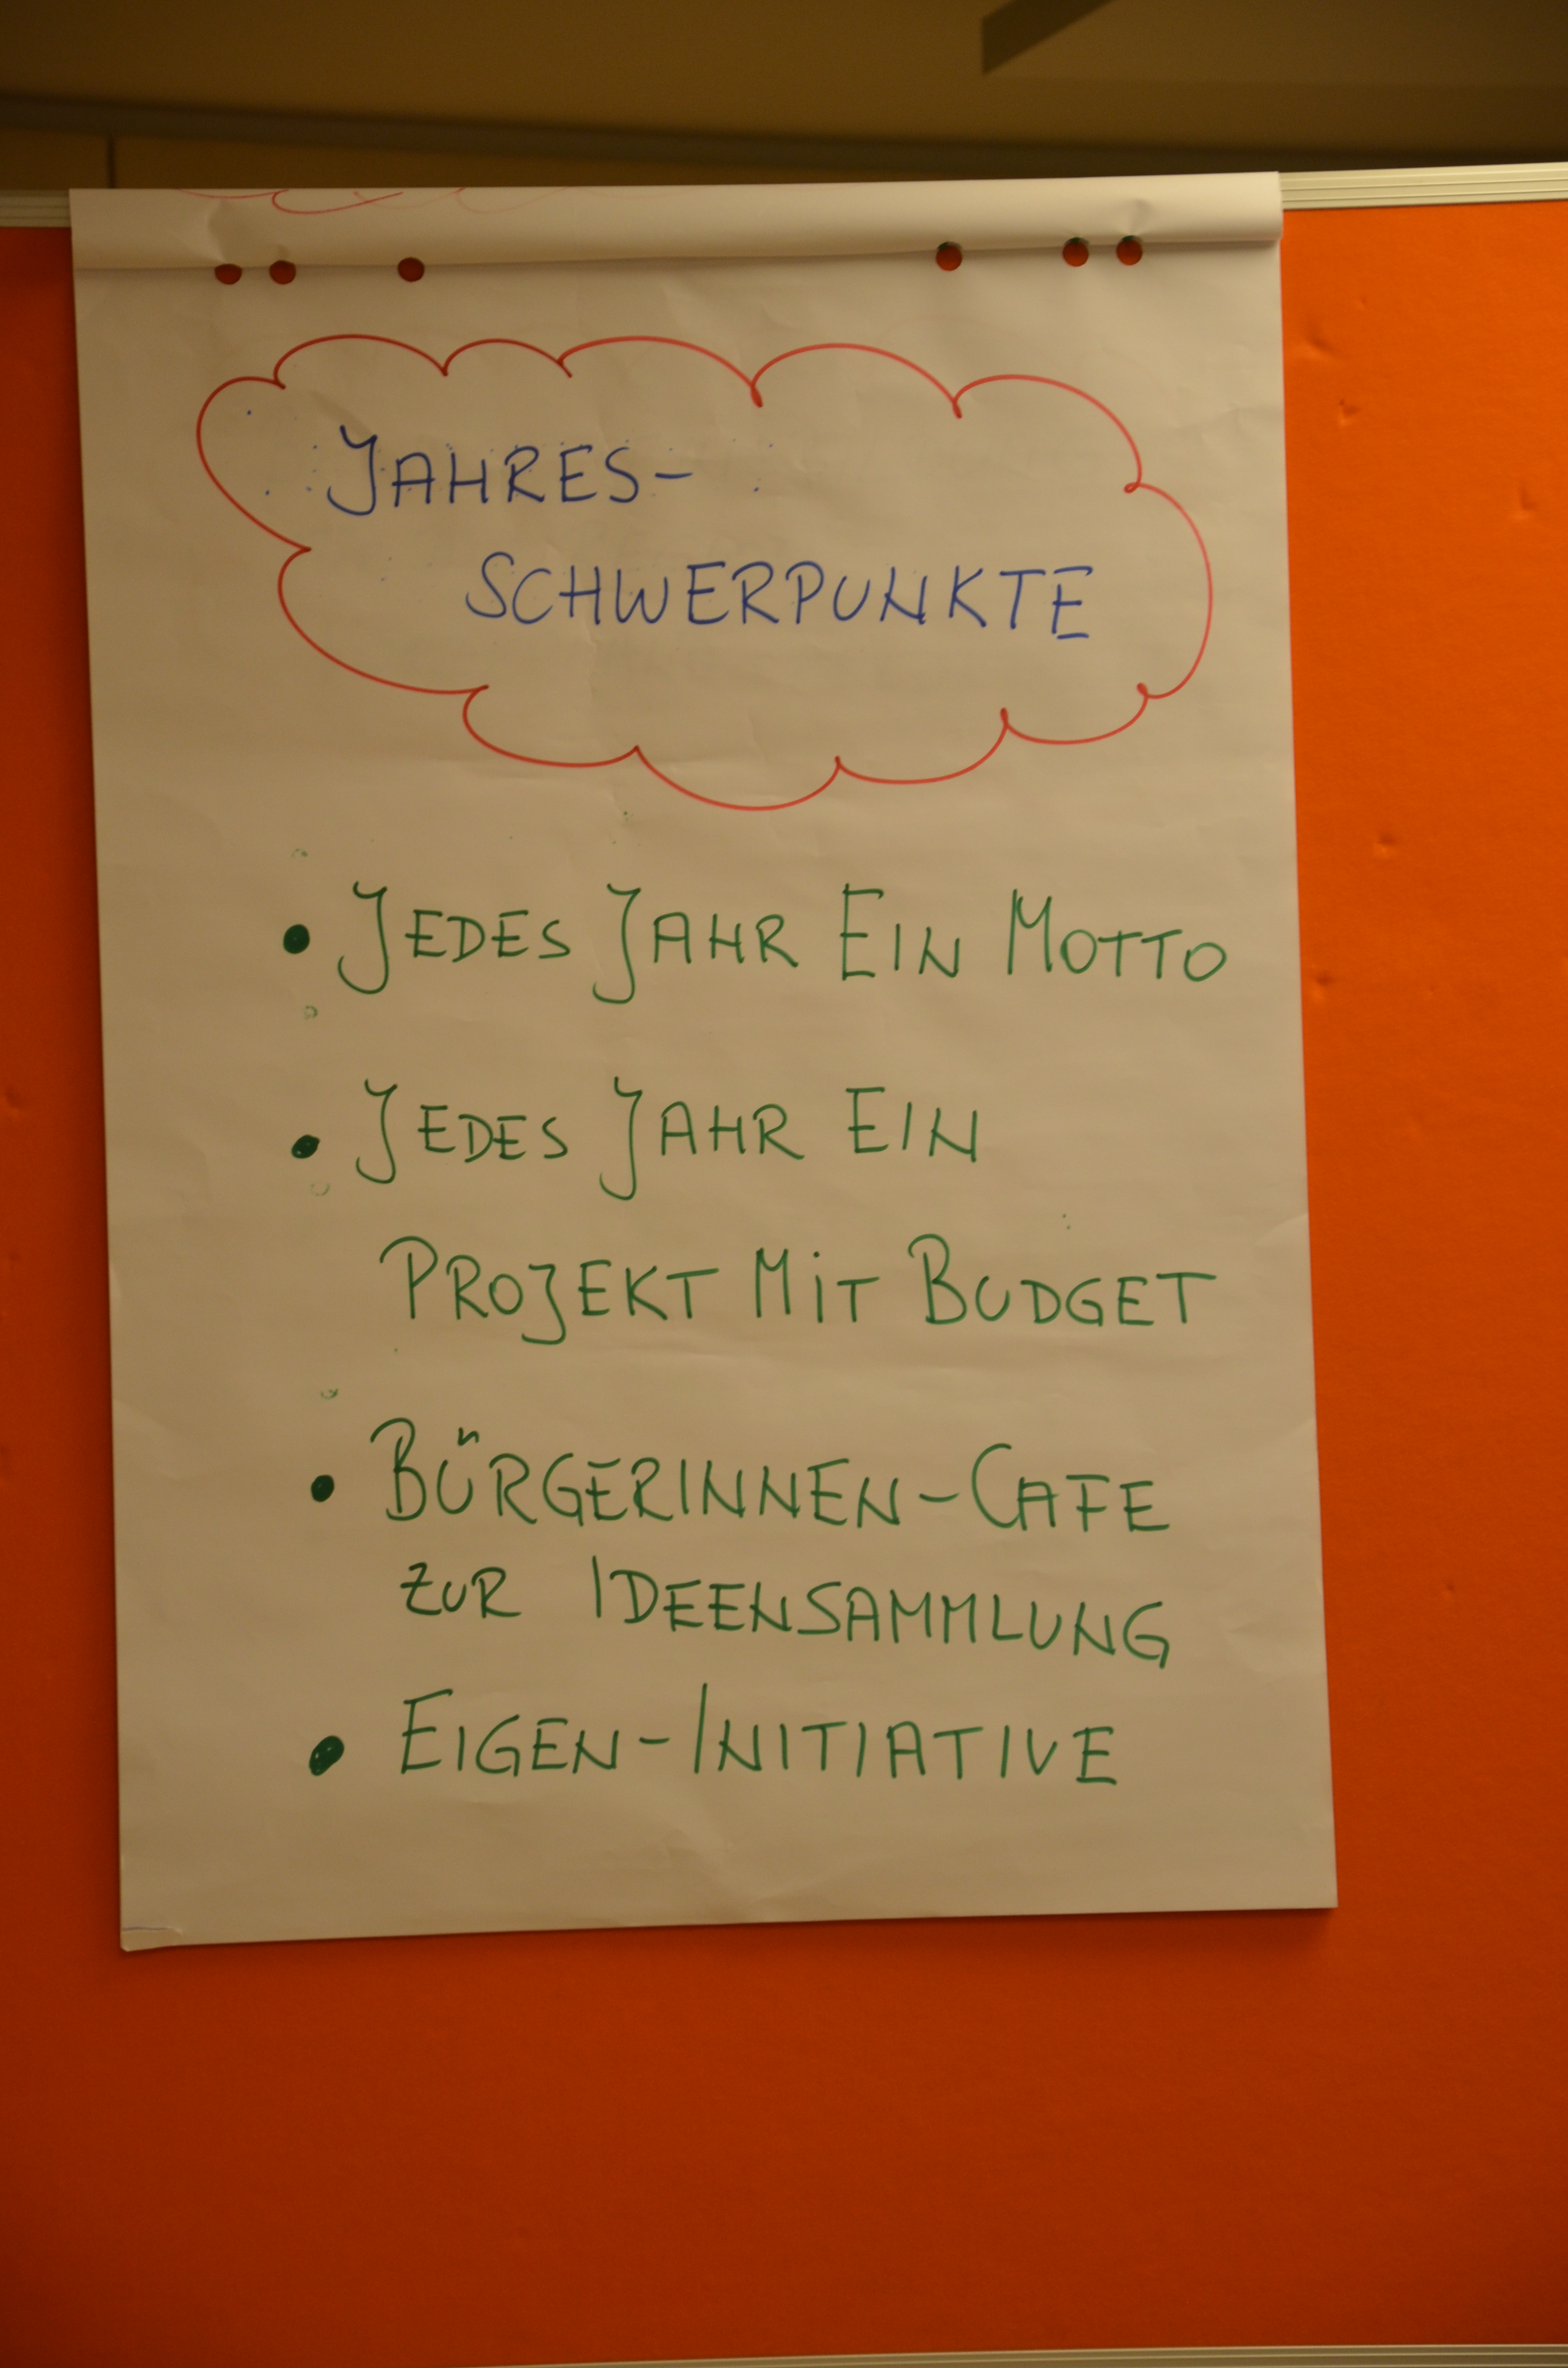 JAHRES-
SCHWERPUNKTE
• JEDES JAHR EIN MOTTO
• JEDES JAHR EIN
PROJEKT MIT BUDGET
• BÜRGERINNEN-CAFE
ZUR IDEENSAMMLUNG
• EIGEN-INITIATIVE